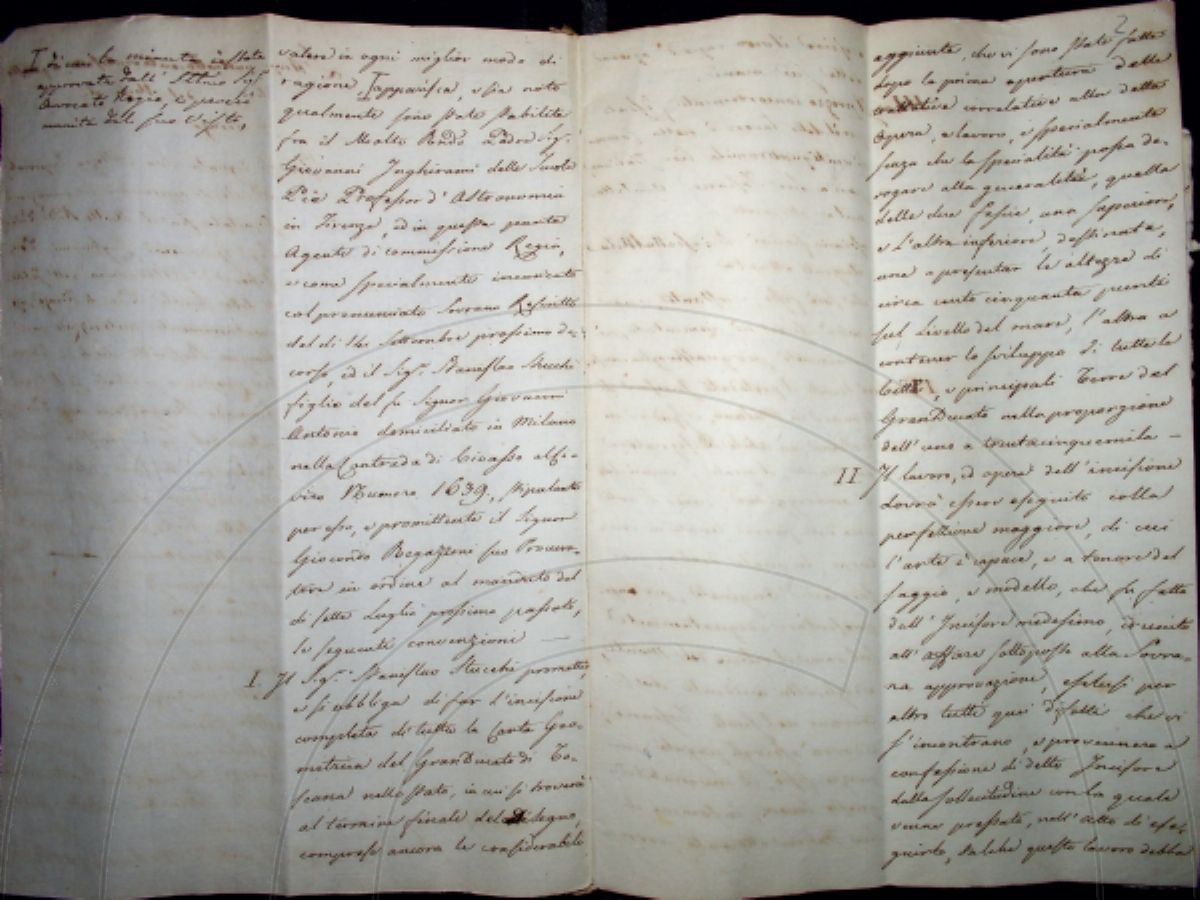 I di cui la minuta è stata
approvata dall' Ill.mo Sig.
Avvocato Regio, e perciò
munita del suo Visto,
valere in ogni miglior modo di
ragione, I apparisca, e sia noto
qualmente sono state stabilite
fra il Molto Rndo Padre Sig.
Giovanni Inghirami delle Scuole
Pie Professor d' Astronomia
in Firenze, ed in questa parte
Agente di commissione Regia,
e come specialmente incaricato
col prenunciato Sovrano Rescritto
del dì Settembre prossimo de-
corso, ed il Sig. Stanislao Stucchi
figlio del fu Signor Giovanni
Antonio domiciliato in Milano
nella Contrada di Ciovasso al Ci-
vico Numero 1639, stipulante
per esso, e promittente il Signor
Giocondo Regazzoni suo Procura-
tore in ordine al mandato del
dì sette Luglio prossimo passato,
le seguenti convenzioni —
I. Il Sig. Stanislao Stucchi promette,
e si obbliga di far l'incisione
completa di tutta la Carta Geo-
metrica del GranDucato di To-
scana nello stato, in cui si troverà
al termine finale del Disegno,
comprese ancora le considerabili
2
aggiunte, che vi sono state fatte
dopo la prima apertura delle
trattative correlative alla detta
Opera, e lavoro, e specialmente
senza che la specialità possa de-
rogare alla generalità, quella
delle due fascie, una superiore,
e l'altra inferiore, destinate,
una a presentar le altezze di
circa cento cinquanta punti
sul livello del mare, l'altra a
contener lo sviluppo di tutte le
Città, e principali Terre del
GranDucato nella proporzione
dell' uno a trentacinquemila —
II Il lavoro, ed opera dell' incisione
dovrà essere eseguito colla
perfezione maggiore, di cui
l'arte è capace, e a tenore del
saggio, e modello, che fu fatto
dall' Incisore medesimo, ed unito
all' affare sottoposto alla Sovra-
na approvazione, esclusi per
altro tutti quei difetti che vi
s'incontrano, e provennero a
confessione di detto Incisore
dalla sollecitudine con la quale
venne pressato, nell' atto di ese-
guirlo, talchè questo lavoro debba